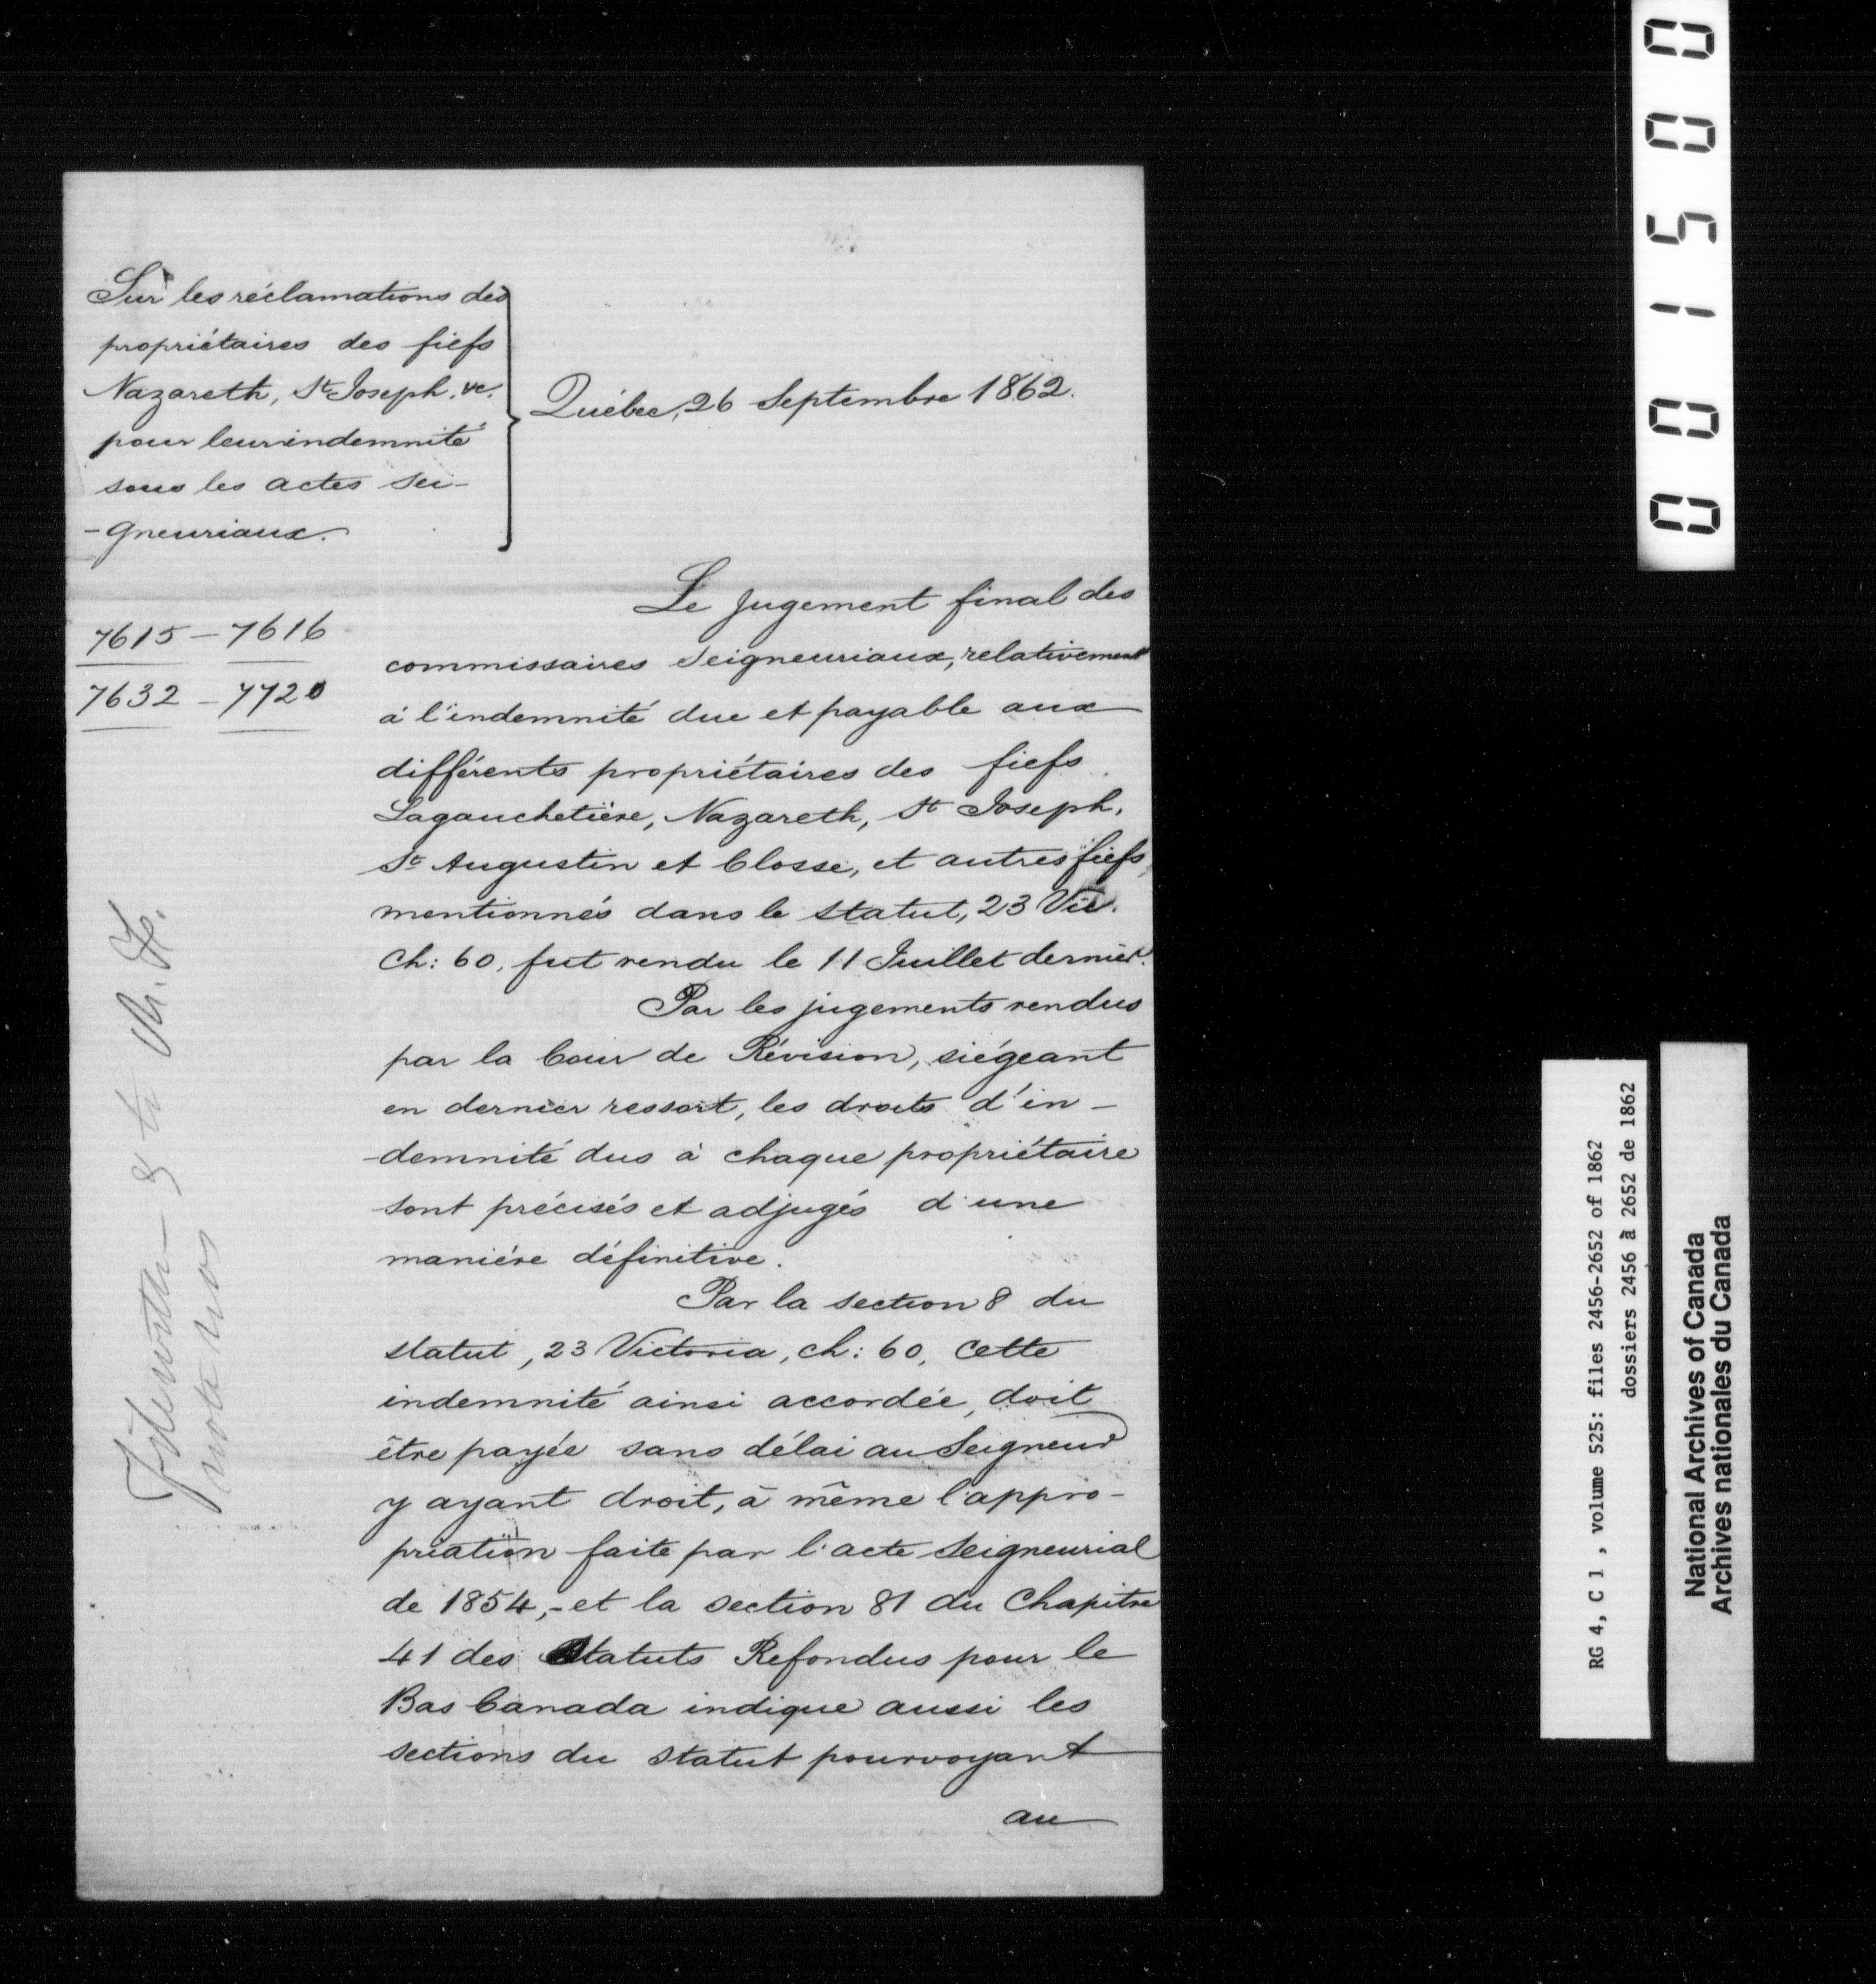 Sur les réclamations des
propriétaires des fiefs
Nazareth, St Joseph, &c.
pour leur indemnité
sous les actes Sei-
-gneuriaux.
Québec, 26 Septembre 1862.
7615 - 7616
7632 - 7720
Le Jugement final des
commissaires Seigneuriaux, relativement
à l'indemnité due et payable aux
différents propriétaires des fiefs
Lagauchetière, Nazareth, St Joseph,
St Augustin et Closse, et autres fiefs,
mentionnés dans le Statut, 23 Vic.
Ch: 60, fut rendu le 11 Juillet dernier.
Par les jugements rendus
par la Cour de Révision, siégeant
en dernier ressort, les droits d'in-
-demnité dus à chaque propriétaire
sont précisés et adjugés d'une
manière définitive.
Par la section 8 du
statut, 23 Victoria, ch: 60, cette
indemnité ainsi accordée, doit
être payée sans délai au Seigneur
y ayant droit, à même l'appro-
priation faite par l'acte Seigneurial
de 1854,- et la section 81 du Chapitre
41 des Statuts Refondus pour le
Bas Canada indique aussi les
sections du Statut pourvoyant
au
001500
RG 4, C 1 , volume 525: files 2456-2652 of 1862
dossiers 2456 à 2652 de 1862
National Archives of Canada
Archives nationales du Canada